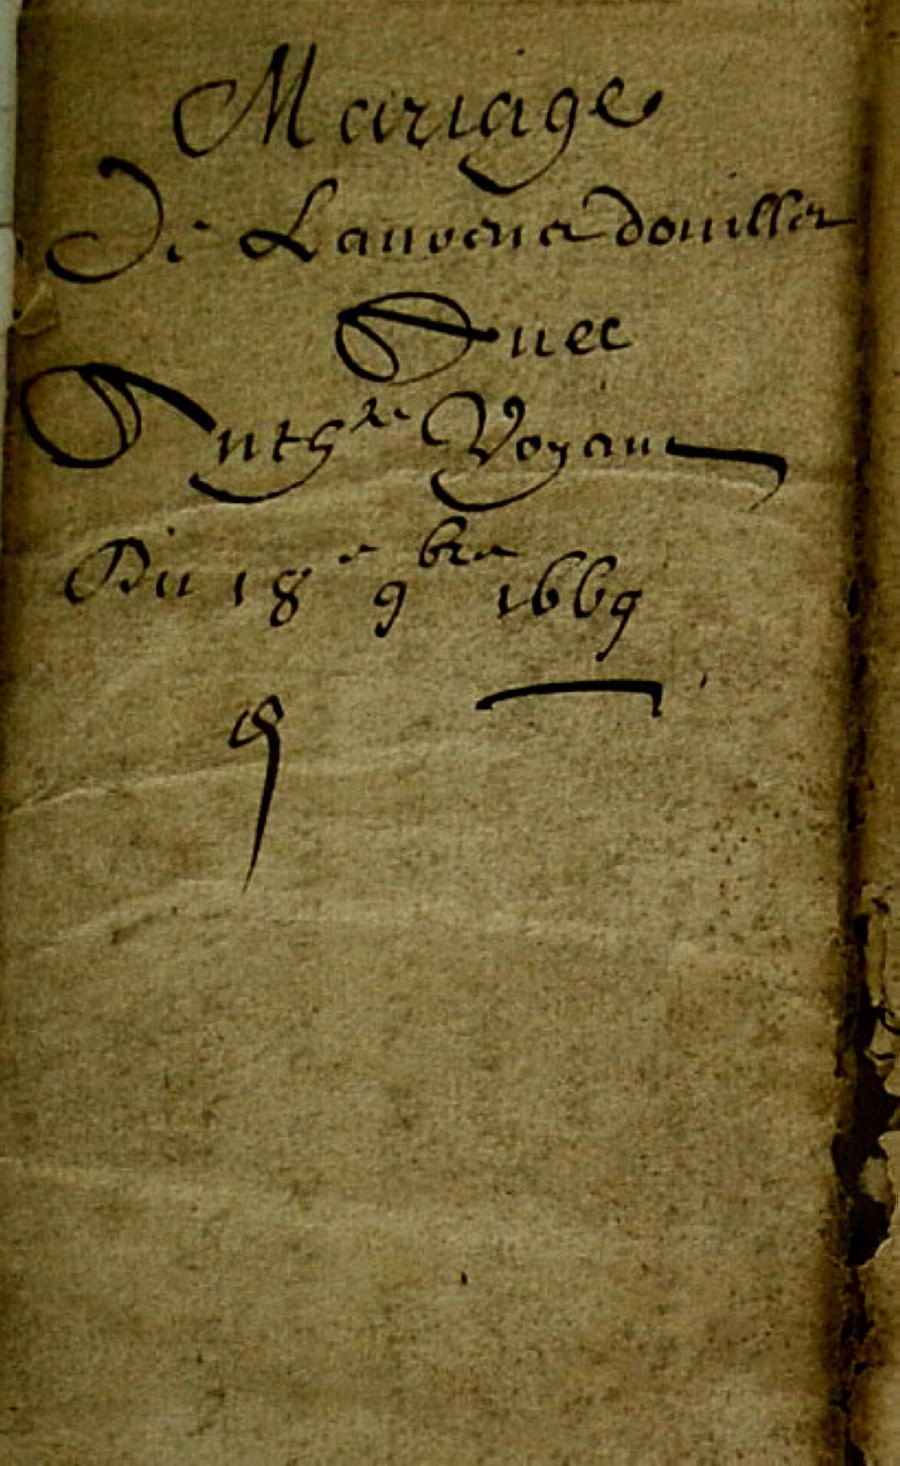 Mariage
De Laurence douillet
Auec
Anth^re Voyant
Du 18^e 9^bre 1669